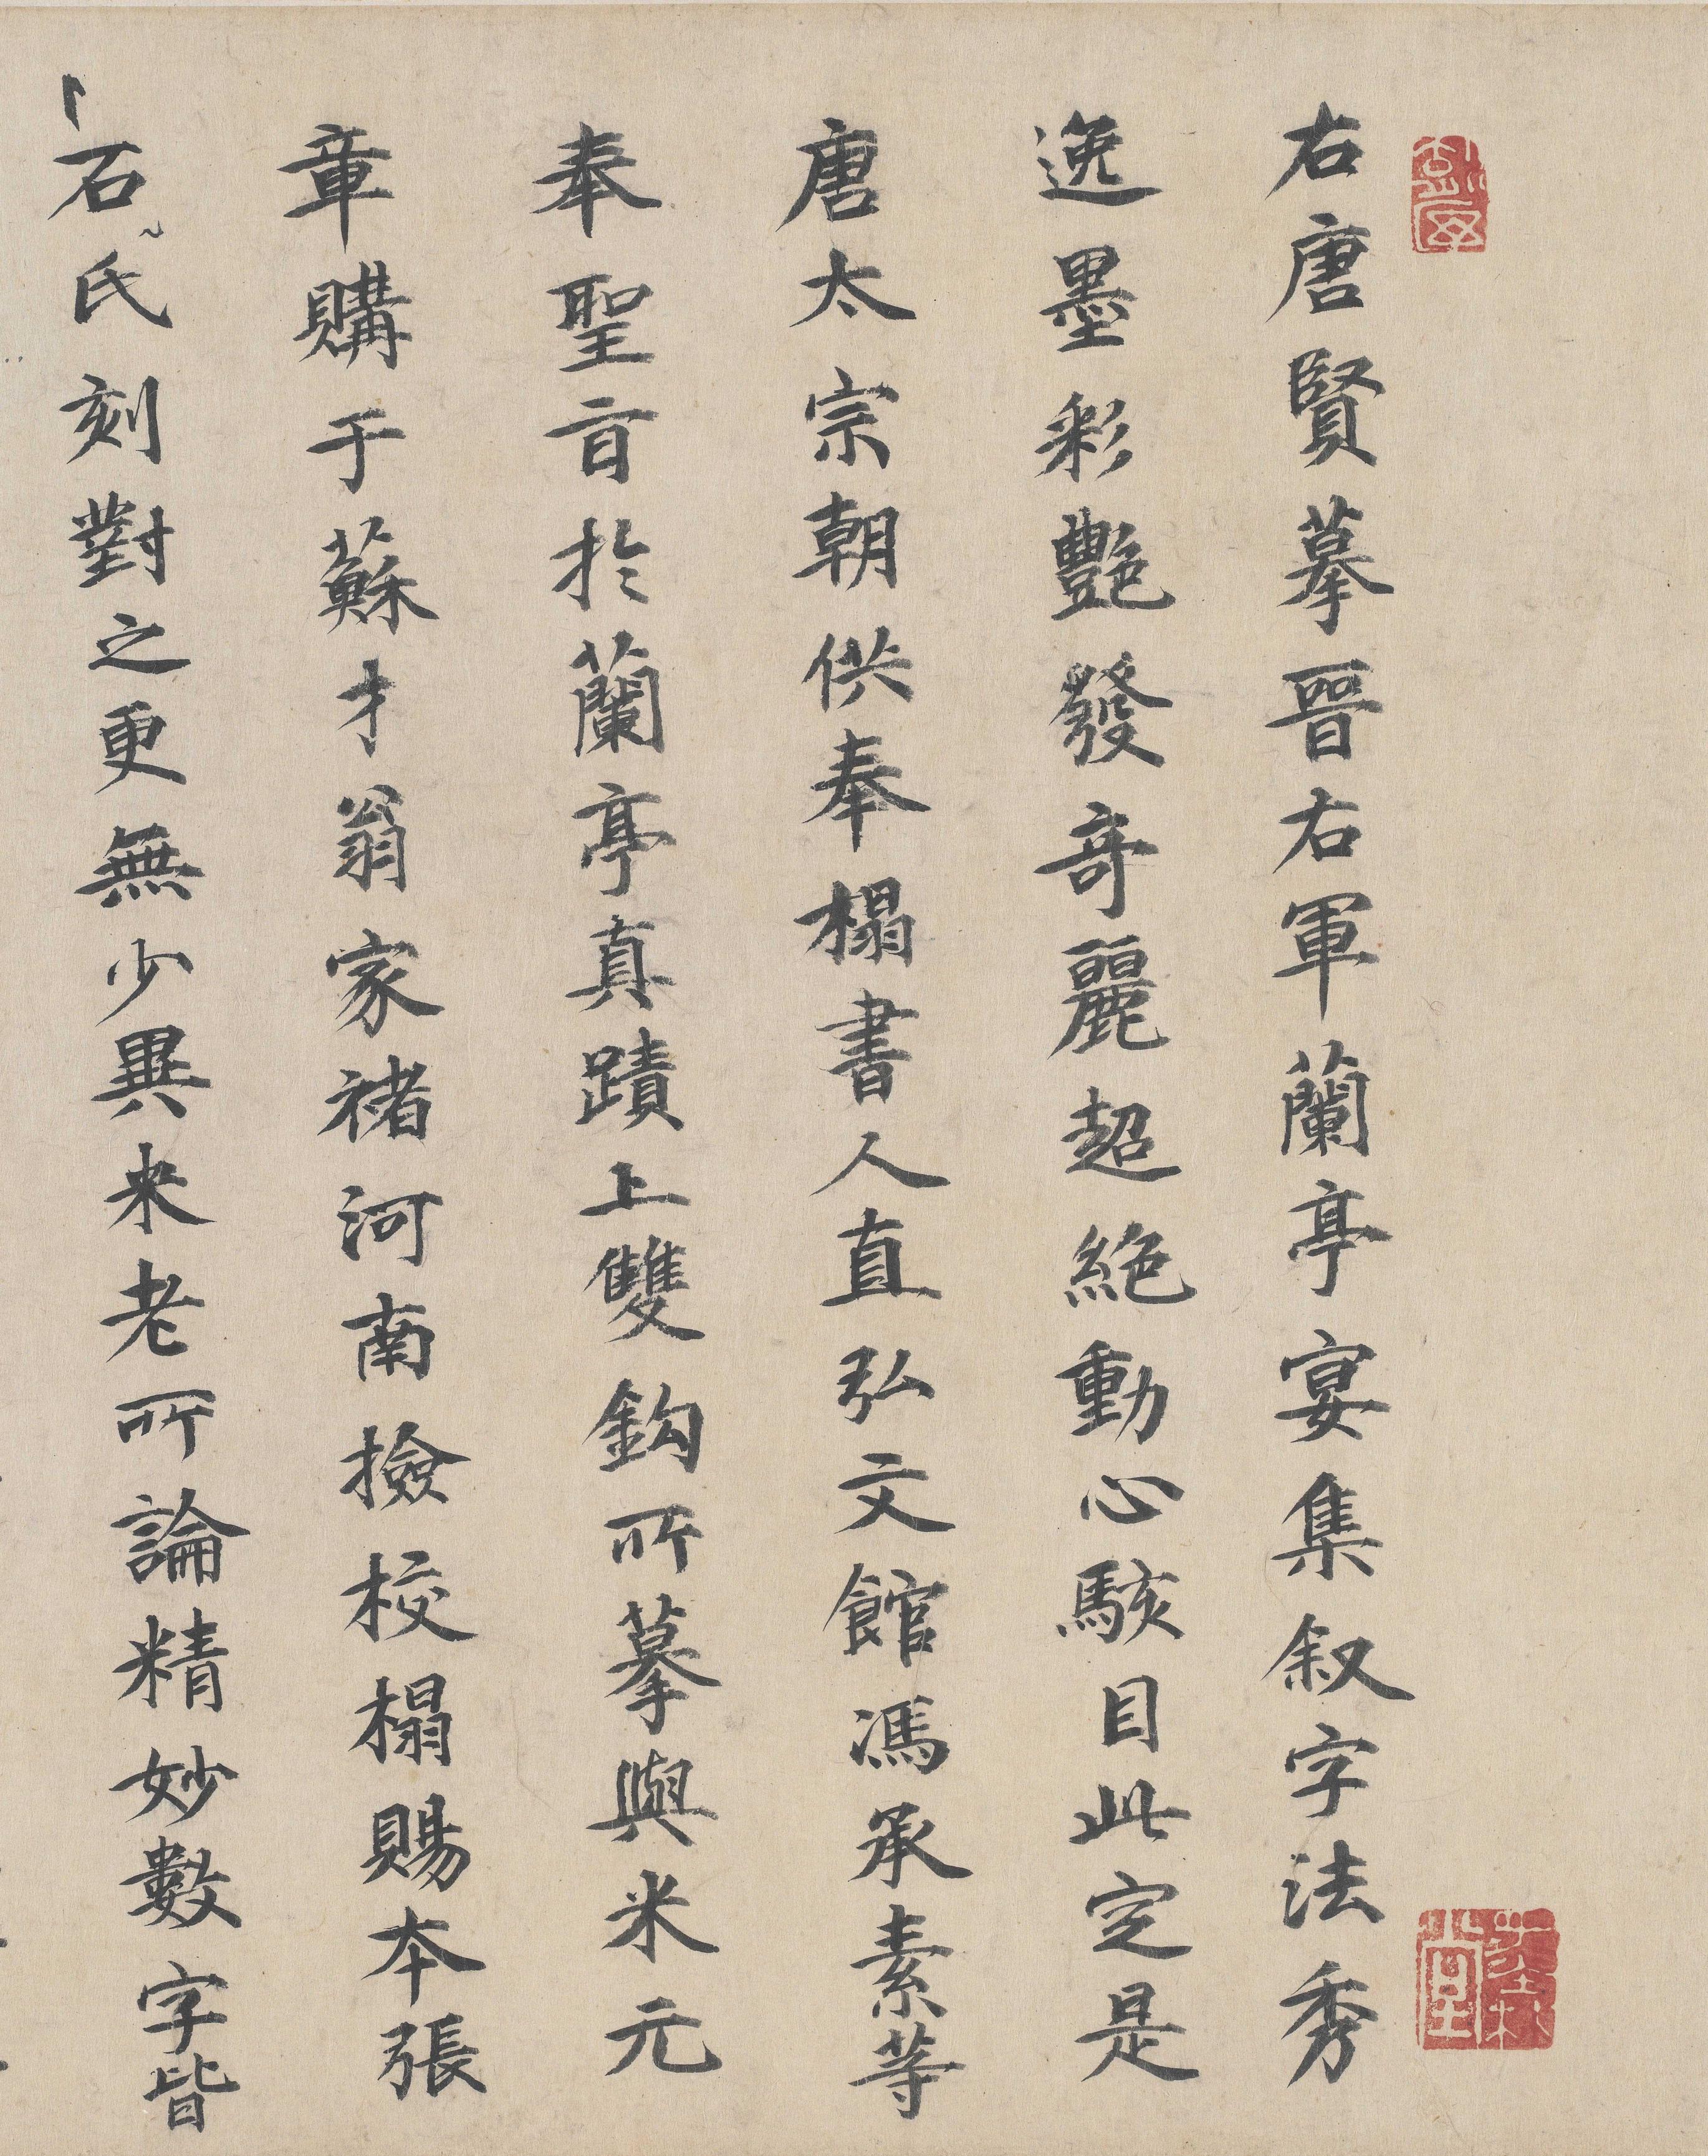 右唐賢摹晉右軍蘭亭宴集叙字法秀
逸墨彩艷發奇麗超絶動心駭目此定是
唐太宗朝供奉榻書人直弘文館馮承素等
奉聖旨於蘭亭真蹟上雙鈎所摹與米元
章購于蘇才翁家褚河南撿校榻賜本張
石氏刻對之更無少異米老所論精妙數字皆